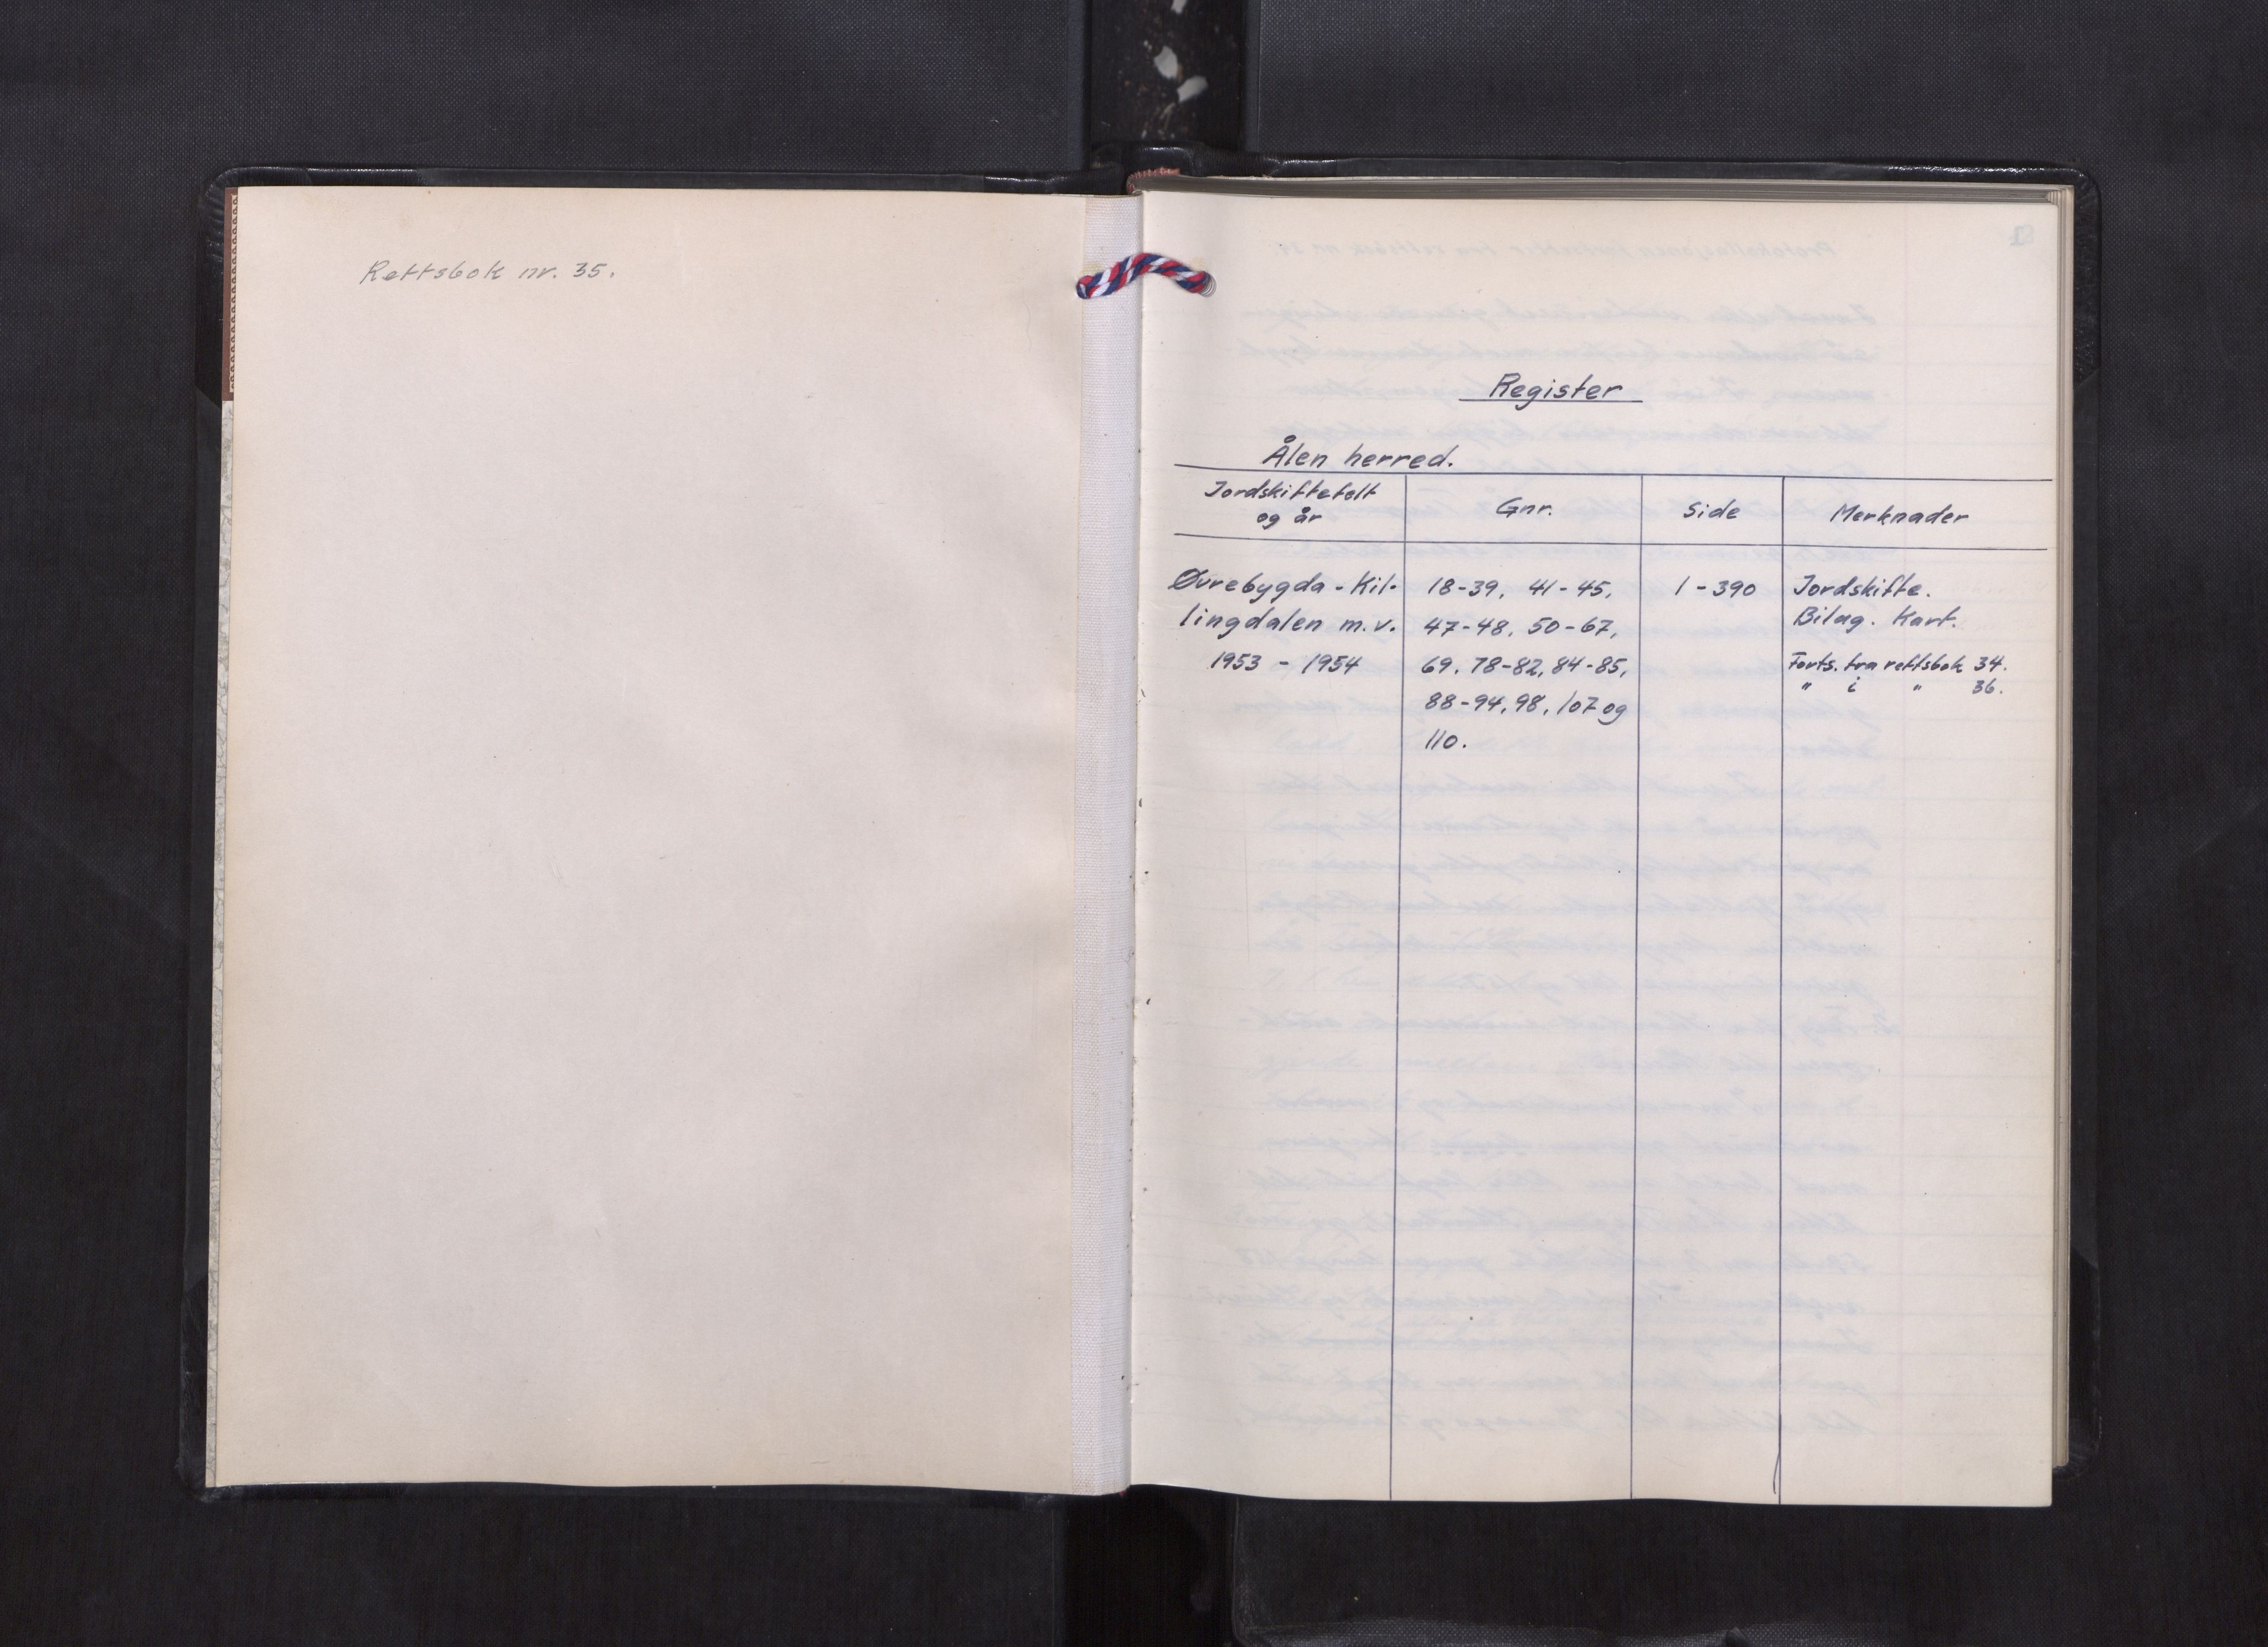 Rettsbok nr. 35.
Register
Ålen herred.
Jordskiftefelt
og år
Gnr.
Side
Merknader
Øvrebygda - Kil-
lingdalen m.v.
1953 - 1954
18-39, 41-45,
47-48, 50-67,
69, 78-82, 84-85,
88-94, 98, 107 og
110.
1 - 390
Jordskifte.
Bilag. Kart.
Forts. fra rettsbok 34.
" i " 36.